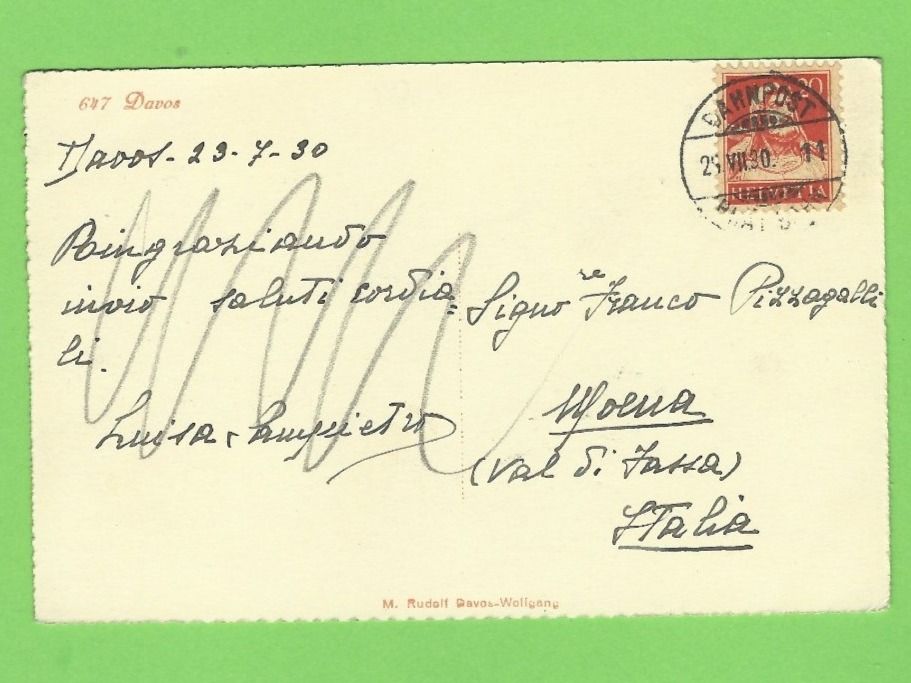 647 Davos
Davos - 23-7-30
Ringraziando
invio saluti cordia=
li.
Luisa Sampietro
BAHNPOST
25.VII.30. 11
20
HELVETIA
Signore Franco Pizzagalli
Moena
(Val di Fassa)
Italia
M. Rudolf Davos-Wolfgang